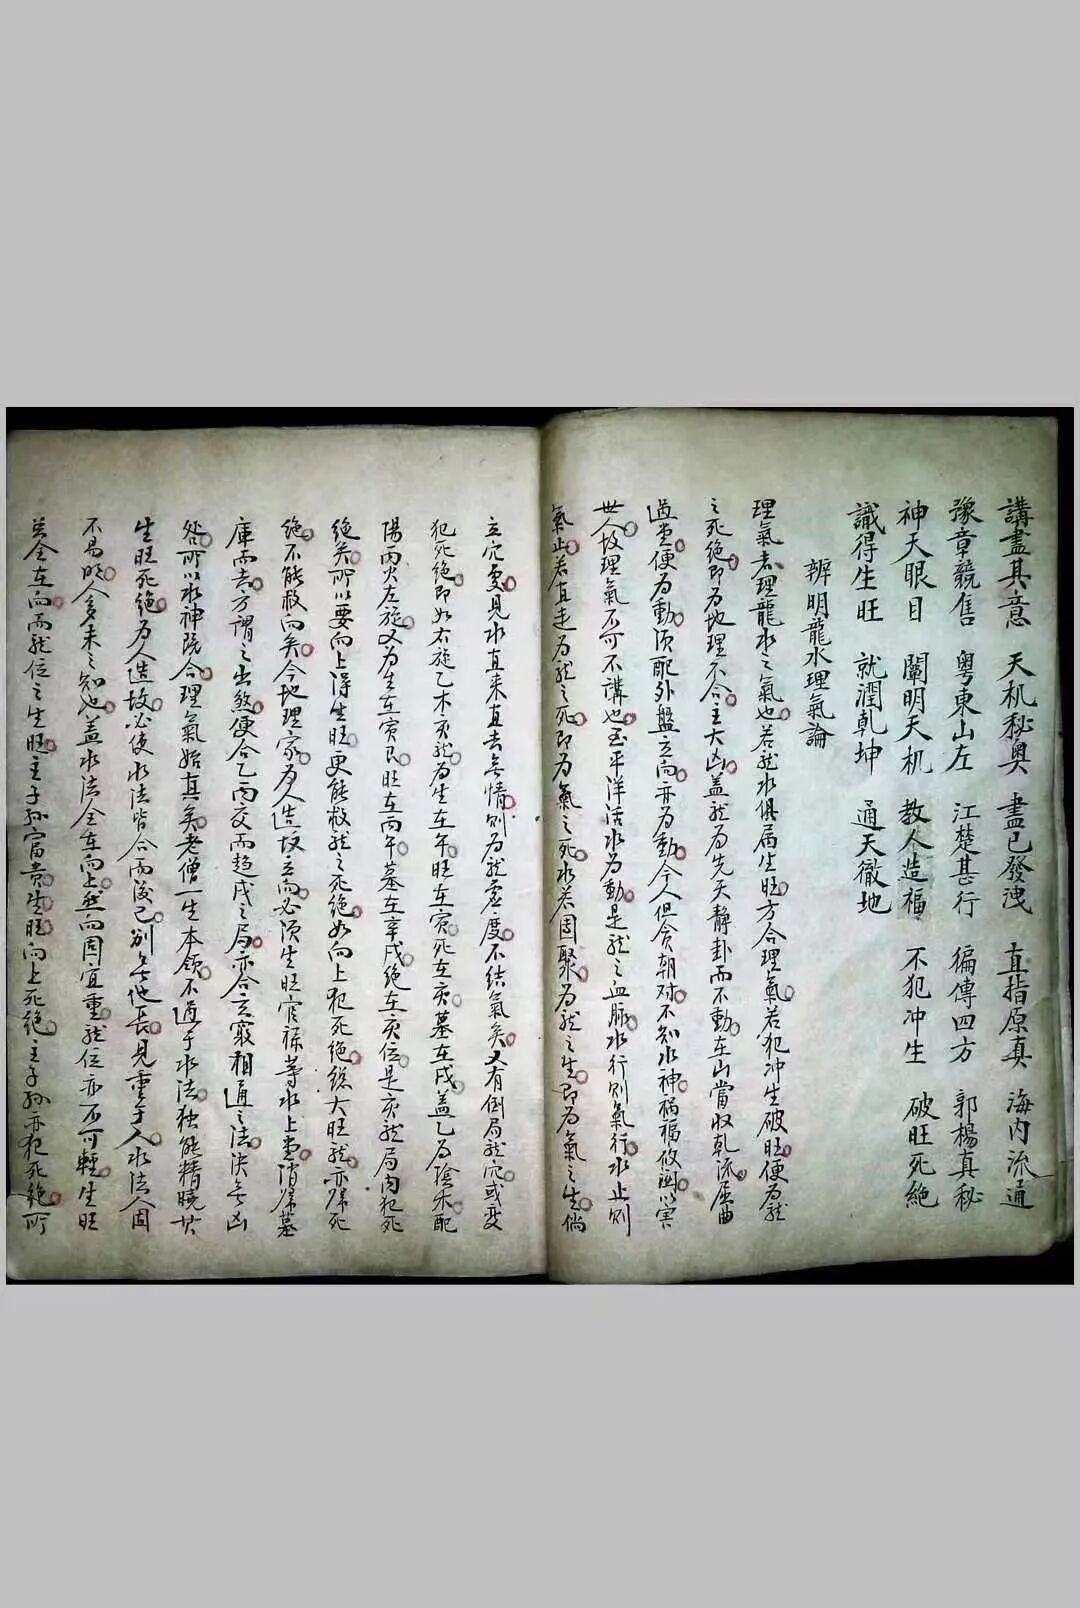 講盡其意　天机秘奥　盡已發洩　直指原真　海内流通
豫章競售　粤東山左　江楚甚行　徧傳四方　郭楊真秘
神天眼目　闡明天机　教人造福　不犯冲生　破旺死絶
識得生旺　就潤乾坤　通天徹地
辨明龍水理氣論
理氣者理龍水之氣也若龍水俱属生旺方合理氣若犯冲生破旺便為龍
之死絶即為地理不合主大凶蓋龍為先天静卦而不動在山當收乾流屈曲
過堂便為動須配外盤立向亦為動今人但貪朝对不知水神禍福攸関以害
世人故理氣不可不講也至平洋活水为動是龍之血脉水行则氣行水止则
氣止若直走为龍之死即为氣之死水若囬聚为龍之生即为氣之生倘
立穴處見水直来直去無情则为龍虚度不结氣矣又有倒局龍穴或变
犯死絶即如右旋乙木亥龍为生在午旺在寅死在亥墓在戌盖乙为陰木配
陽丙火左旋又为生在寅艮旺在丙午墓在辛戌絶在亥位是亥龍局内犯死
絶矣所以要向上得生旺更能救龍之死絶如向上犯死絶總大旺龍亦歸死
絶不能救向矣今地理家为人造坟立向必须生旺官禄等水上堂消归墓
庫而去方謂之出煞便合乙丙交而趋戌之局亦合玄竅相通之法决無凶
咎所以水神既合理氣始真矣老僧一生本領不過于水法独能精曉其
生旺死絶为人造故必使水法皆合而後已别無他長見重于人水法人固
不易明人多未之知也盖水法全在向上然向固宜重龍位亦不可輕生旺
若全在向而龍位之生旺主子孙富贵生旺向上死絶主子孙亦犯死絶所